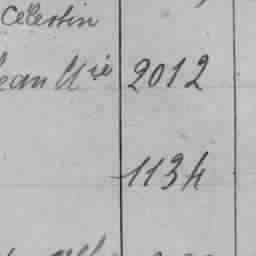 Célestin
ean Mie 2012
1134